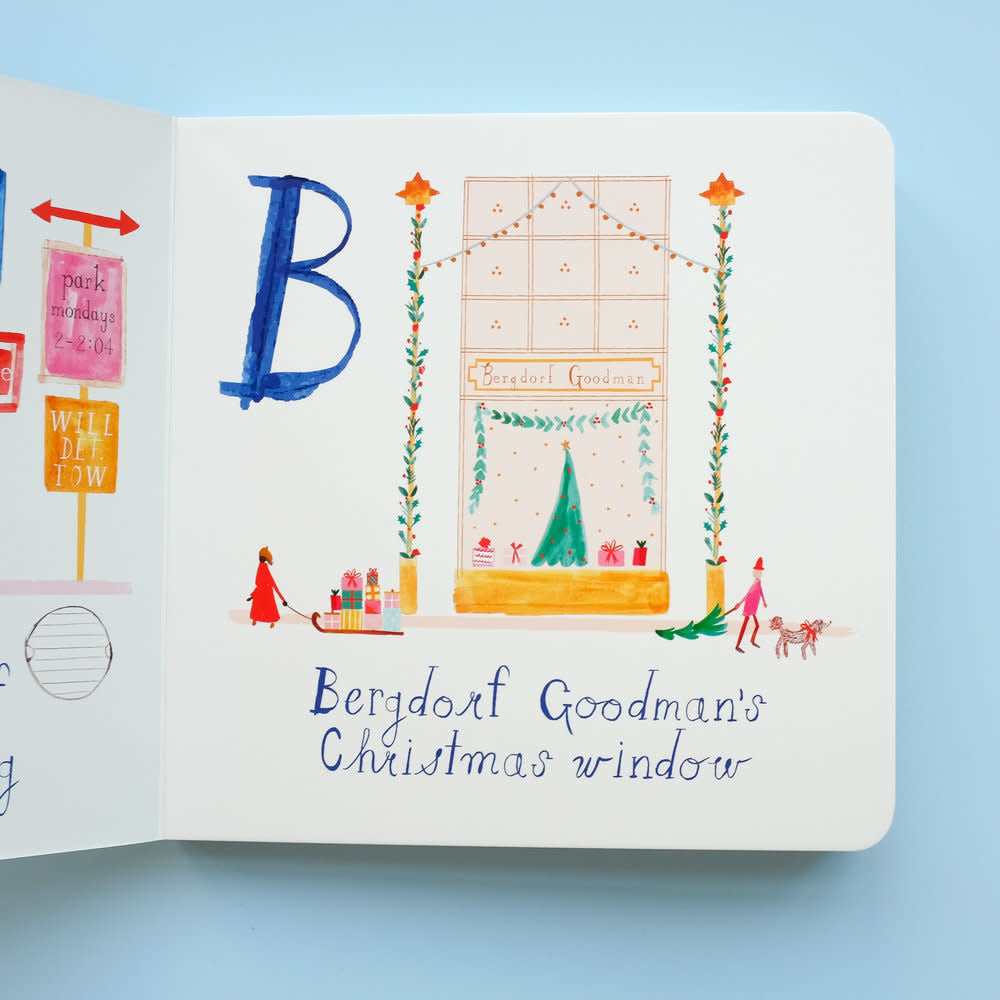 park
mondays
2-2:04
WILL
DET.
TOW
B
Bergdorf Goodman
Bergdorf Goodman's
Christmas window